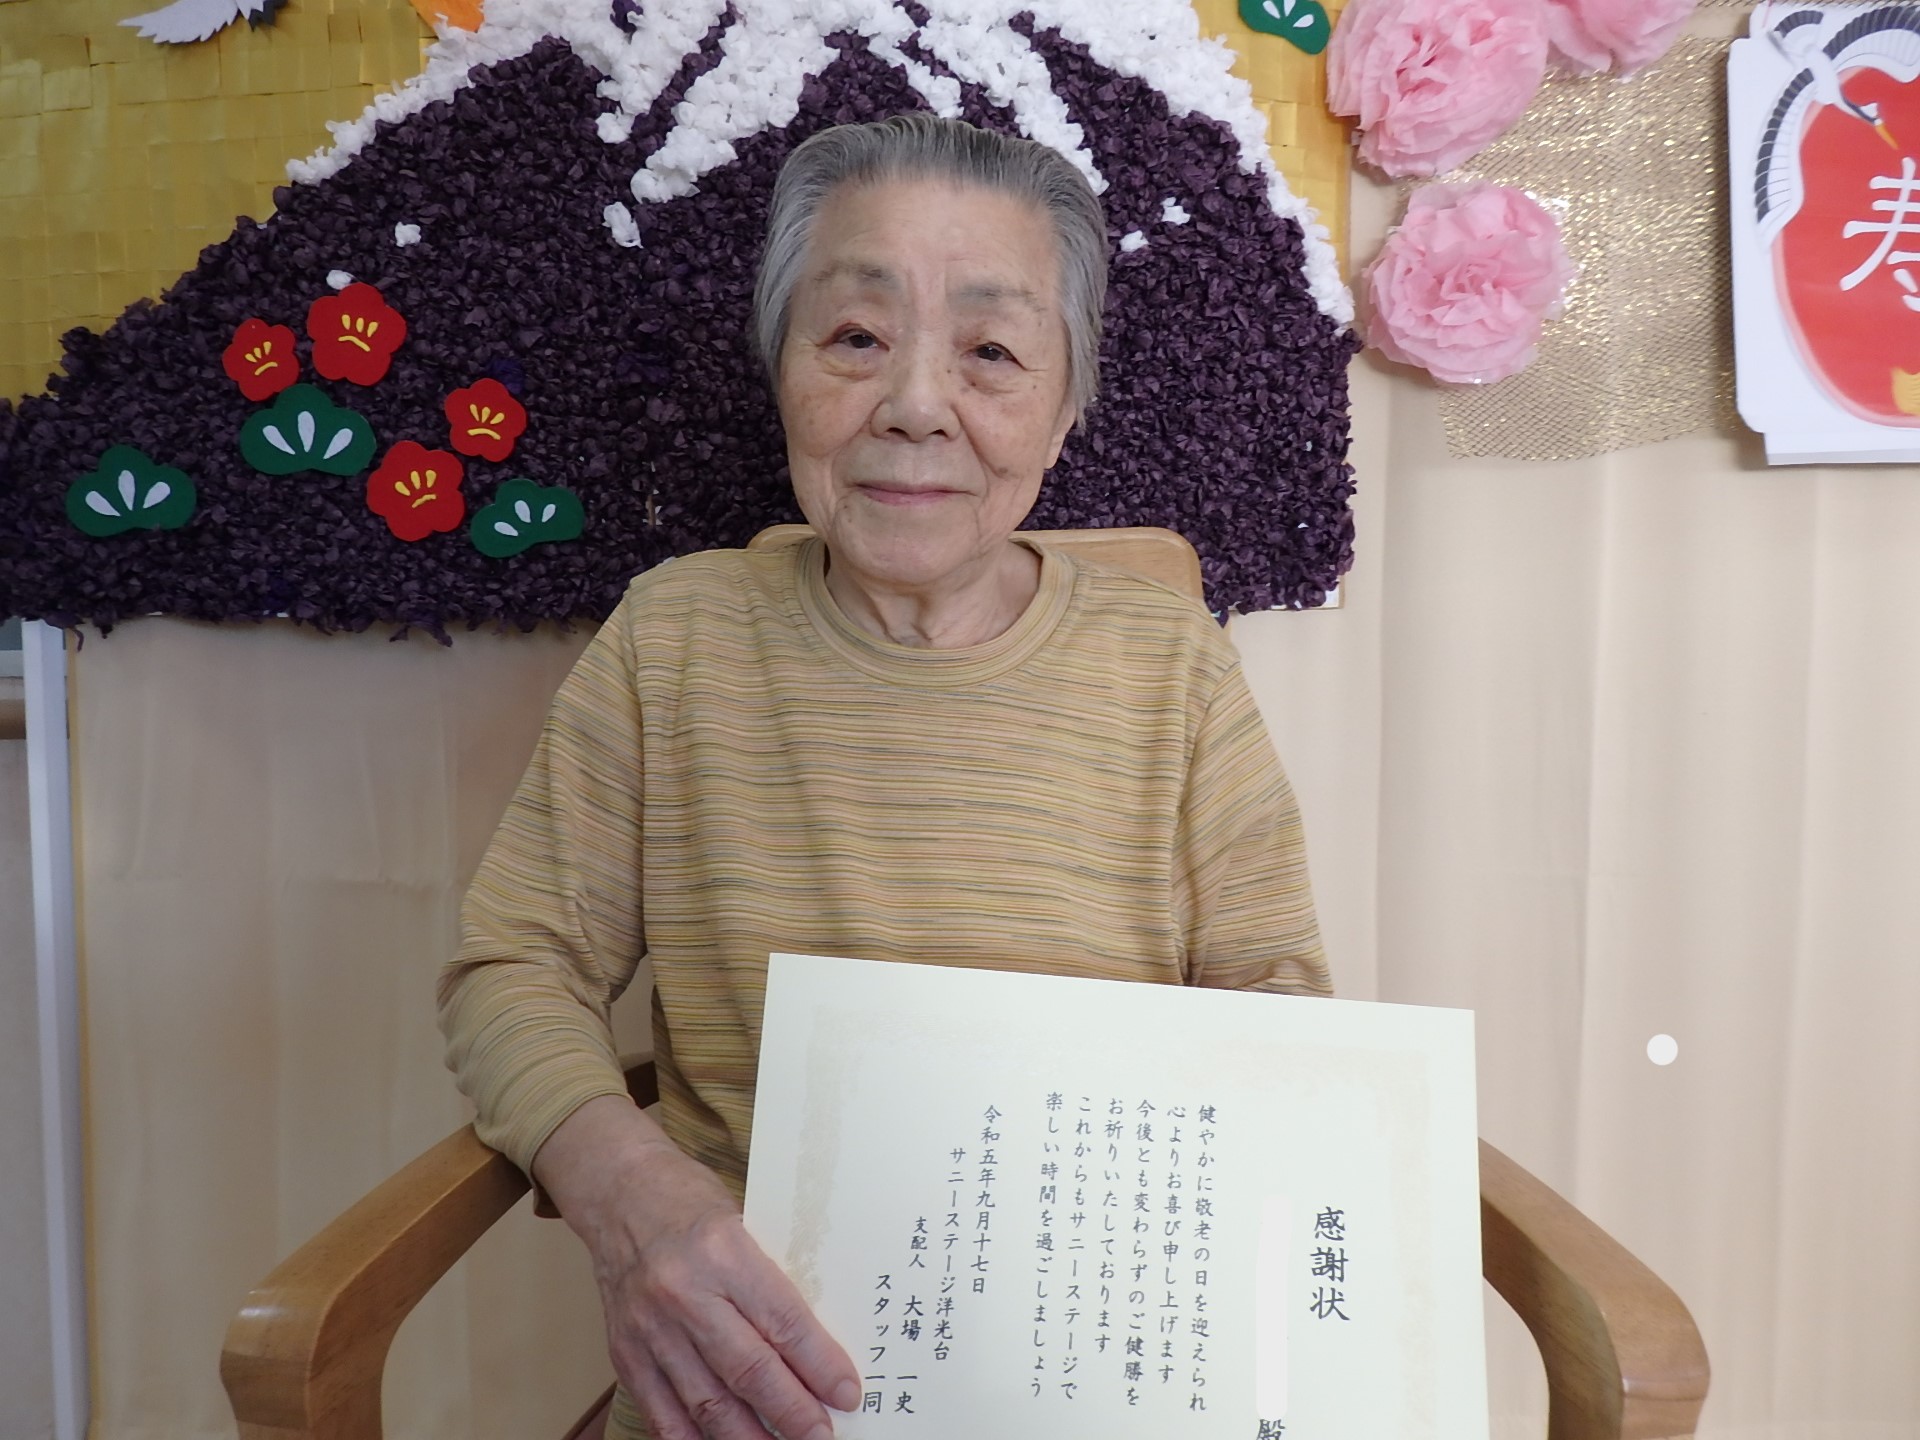 寿
感謝状
殿
健やかに敬老の日を迎えられ
心よりお喜び申し上げます
今後とも変わらずのご健勝を
お祈りいたしております
これからもサニーステージで
楽しい時間を過ごしましょう
令和五年九月十七日
サニーステージ洋光台
支配人 大場 一史
スタッフ一同